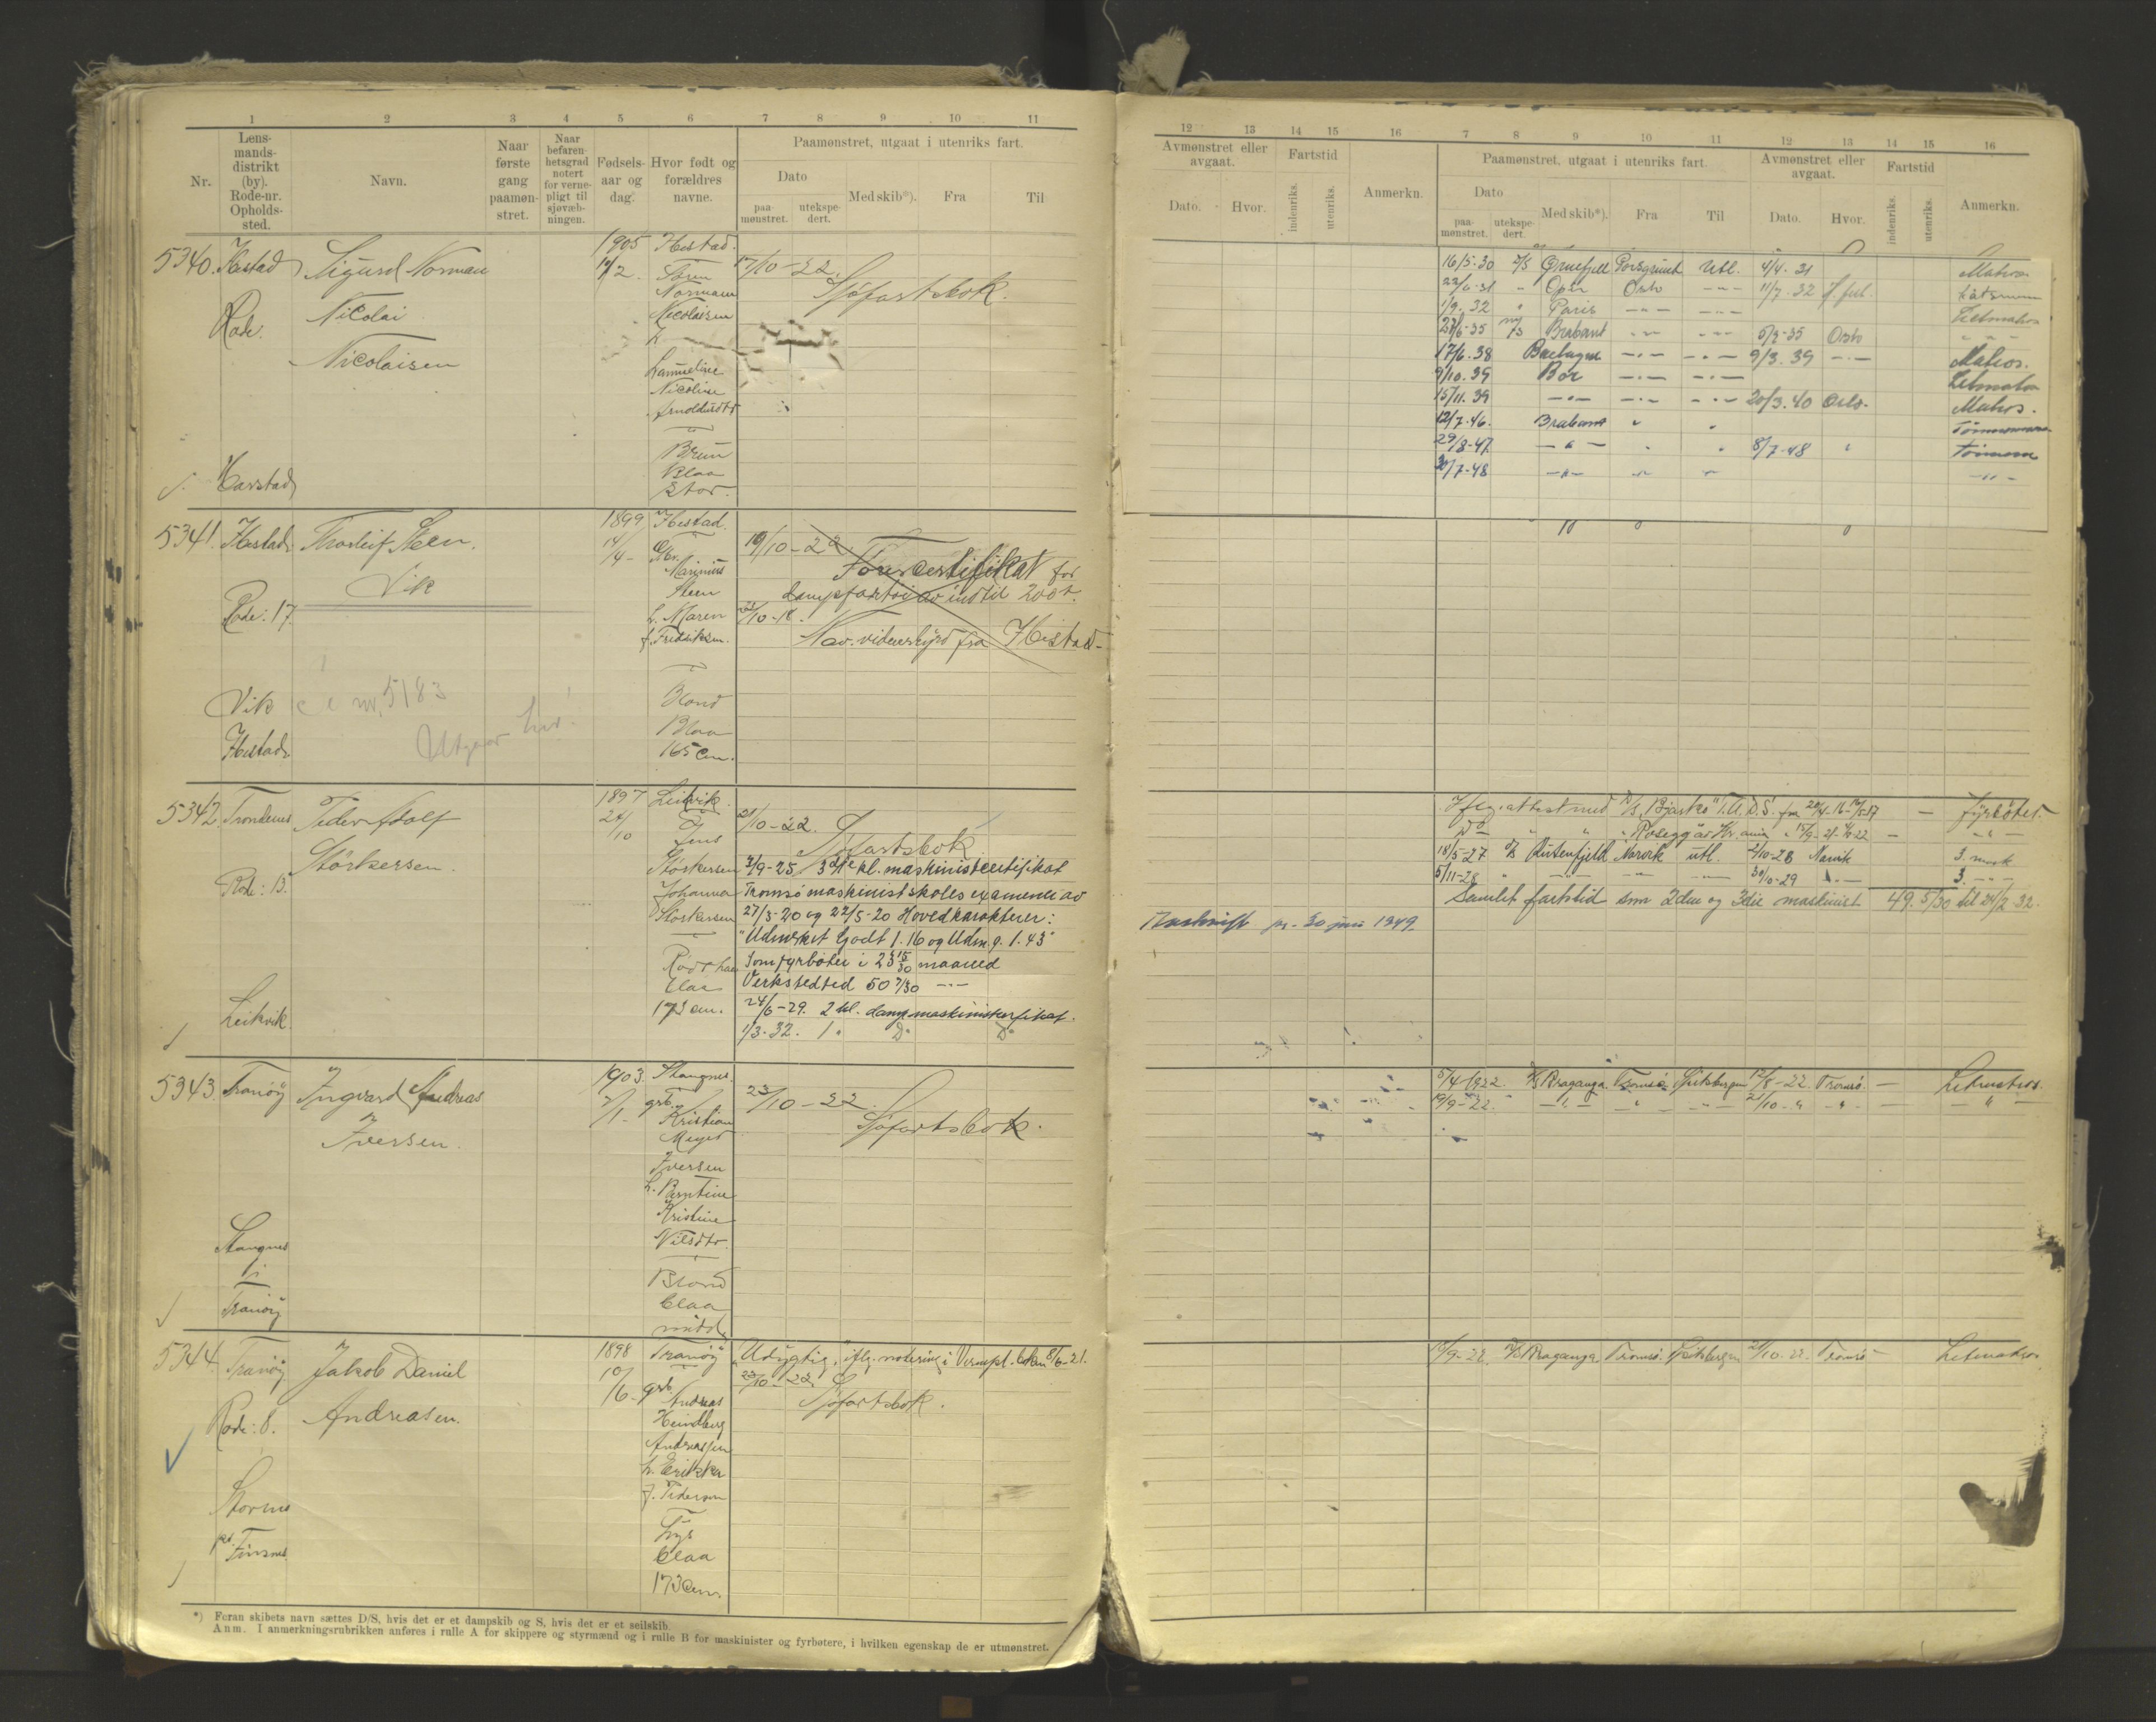 1 2 3 4 5 6 7 8 9 10 11
Nr.
Lens-
mands-
distrikt
(by).
Rode-nr.
Opholds-
sted.
Navn.
Naar
første
gang
paamøn-
stret.
Naar
befaren-
hetsgrad
notert
for verne-
pligt til
sjøvæb-
ningen.
Fødsels-
aar og
dag.
Hvor født og
forældres
navne.
Paamønstret, utgaat i utenriks fart.
Dato
paa-
mønstret.
utekspe-
dert.
Med skib*).
Fra
Til
5340. Hestad Sigurd Norman
Nicolai
Nicolaisen
Rode:
Harstad
1905
Hestad.
Sören
Norman
Nicolaisen
Lamueline
Nicoline
Arnoldusdtr
Brun
Blaa
Stor.
17/10-22.
Sjøfartsbok.
5341. Hestad Thorleif Steen.
Vik
Rode: 17.
Vik
Hestad
nr. 5183
Utgaar her!
1899
14/4-
Hestad.
Marinius
Steen
h. Maren
f. Fredriksen.
Blond
Blaa
165 cm.
19/10-22
Førercertifikat for
dampfartøi av indtil 200 t.
/10-18.
Nav. videnskyrd fra Hestad-
5342. Trondenes Peder Adolf
Störkersen.
Rode: 13.
Leikvik.
1897
24/10
Leikvik.
Jens
Störkersen
Johanna
Störkersen
Rödt haar
blaa
173 cm.
21/10-22.
Sjøfartsbok
3/9-25 3dje kl. maskinistcertifikat
Tromsö maskinistskoles examener av
27/3-20 og 22/5-20 Hovedkarakterer:
"Udmerket Godt 1.16 og Udm.g. 1.43"
Som fyrbøter i 23 15/30 maaned
Verkstedtid 50 7/30 -"-
24/6-29. 2 kl. dampmaskinistcertifikat.
1/3-32. 1. Do Do
5343. Tranöy Ingvard Andreas
Iversen.
Stangnes
i
Tranöy
1903.
2/1-
Stangnes.
grb.
Kristian
Meyer
Iversen
h. Berntine
Kristine
Nilsdtr.
Blond
blaa
midd.
23/10-22.
Sjøfartsbok.
5344. Tranöy Jakob Daniel
Andreasen.
Rode: 8.
1898
10/6-
Tranöy
grb.
Andreas
Heindberg
Andreassen
h. Erikka
f. Pedersen
Lys
blaa
173 cm.
"Udygtig", iflg. notering i Vernpl.-boken 8/6-21.
23/10-22.
Sjøfartsbok.
*) Foran skibets navn sættes D/S, hvis det er et dampskib og S, hvis det er et seilskib.
Anm. I anmerkningsrubrikken anføres i rulle A for skippere og styrmænd og i rulle B for maskinister og fyrbøtere, i hvilken egenskap de er utmønstret.
12 13 14 15 16 7 8 9 10 11 12 13 14 15 16
Avmønstret eller
avgaat.
Dato.
Hvor.
Fartstid
indenriks.
utenriks.
Anmerkn.
Paamønstret, utgaat i utenriks fart.
Dato
paa-
mønstret.
utekspe-
dert.
Med skib*).
Fra
Til
Avmønstret eller
avgaat.
Dato.
Hvor.
Fartstid
indenriks.
utenriks.
Anmerkn.
16/5-30 D/S Gruefjell Porsgrund Utl. 4/4-31 Matros
22/6-31 " Oslo -"- 11/7-32 Båtsmann
1/9-32 " Paris -"- -"- Lettmatros
M/S Brabant -"- -"- 5/9-35 Oslo -"-
17/6-38 -"- -"- 9/3-39 -"- Matros.
9/10.39 Bor -"- -"- Letmatros
15/11.39 -"- -"- -"- 20/3.40 Oslo. Matros.
12/7-46. Brabant " "
29/8-47 -"- 8/7-48 " Tömmerm
30/7-48 -"- -"- -"- -"-
Iflg. attest med D/S "Bjarkö" T.A.D.S. fra 20/4-16- - Fyrböter.
18/5-27 D/S Rutenfjeld Narvik utl. 2/10-28 Narvik 3. mask
5/11-28 " -"- -"- -"- 30/10-29 -"- 3. -"-
Samlet fartstid som 2den og 3die maskinist 49. 5/30 til 24/2-32.
pr. 30 juni 1949.
5/4-1922. D/S Braganza Tromsö Spitsbergen 12/8-22. Tromsö. - Letmatros.
19/9-22. -"- -"- -"- 21/10-" -"- - -"-
/9-22 D/S Braganza Tromsö. Spitsbergen 21/10-22. Tromsö - Letmatros